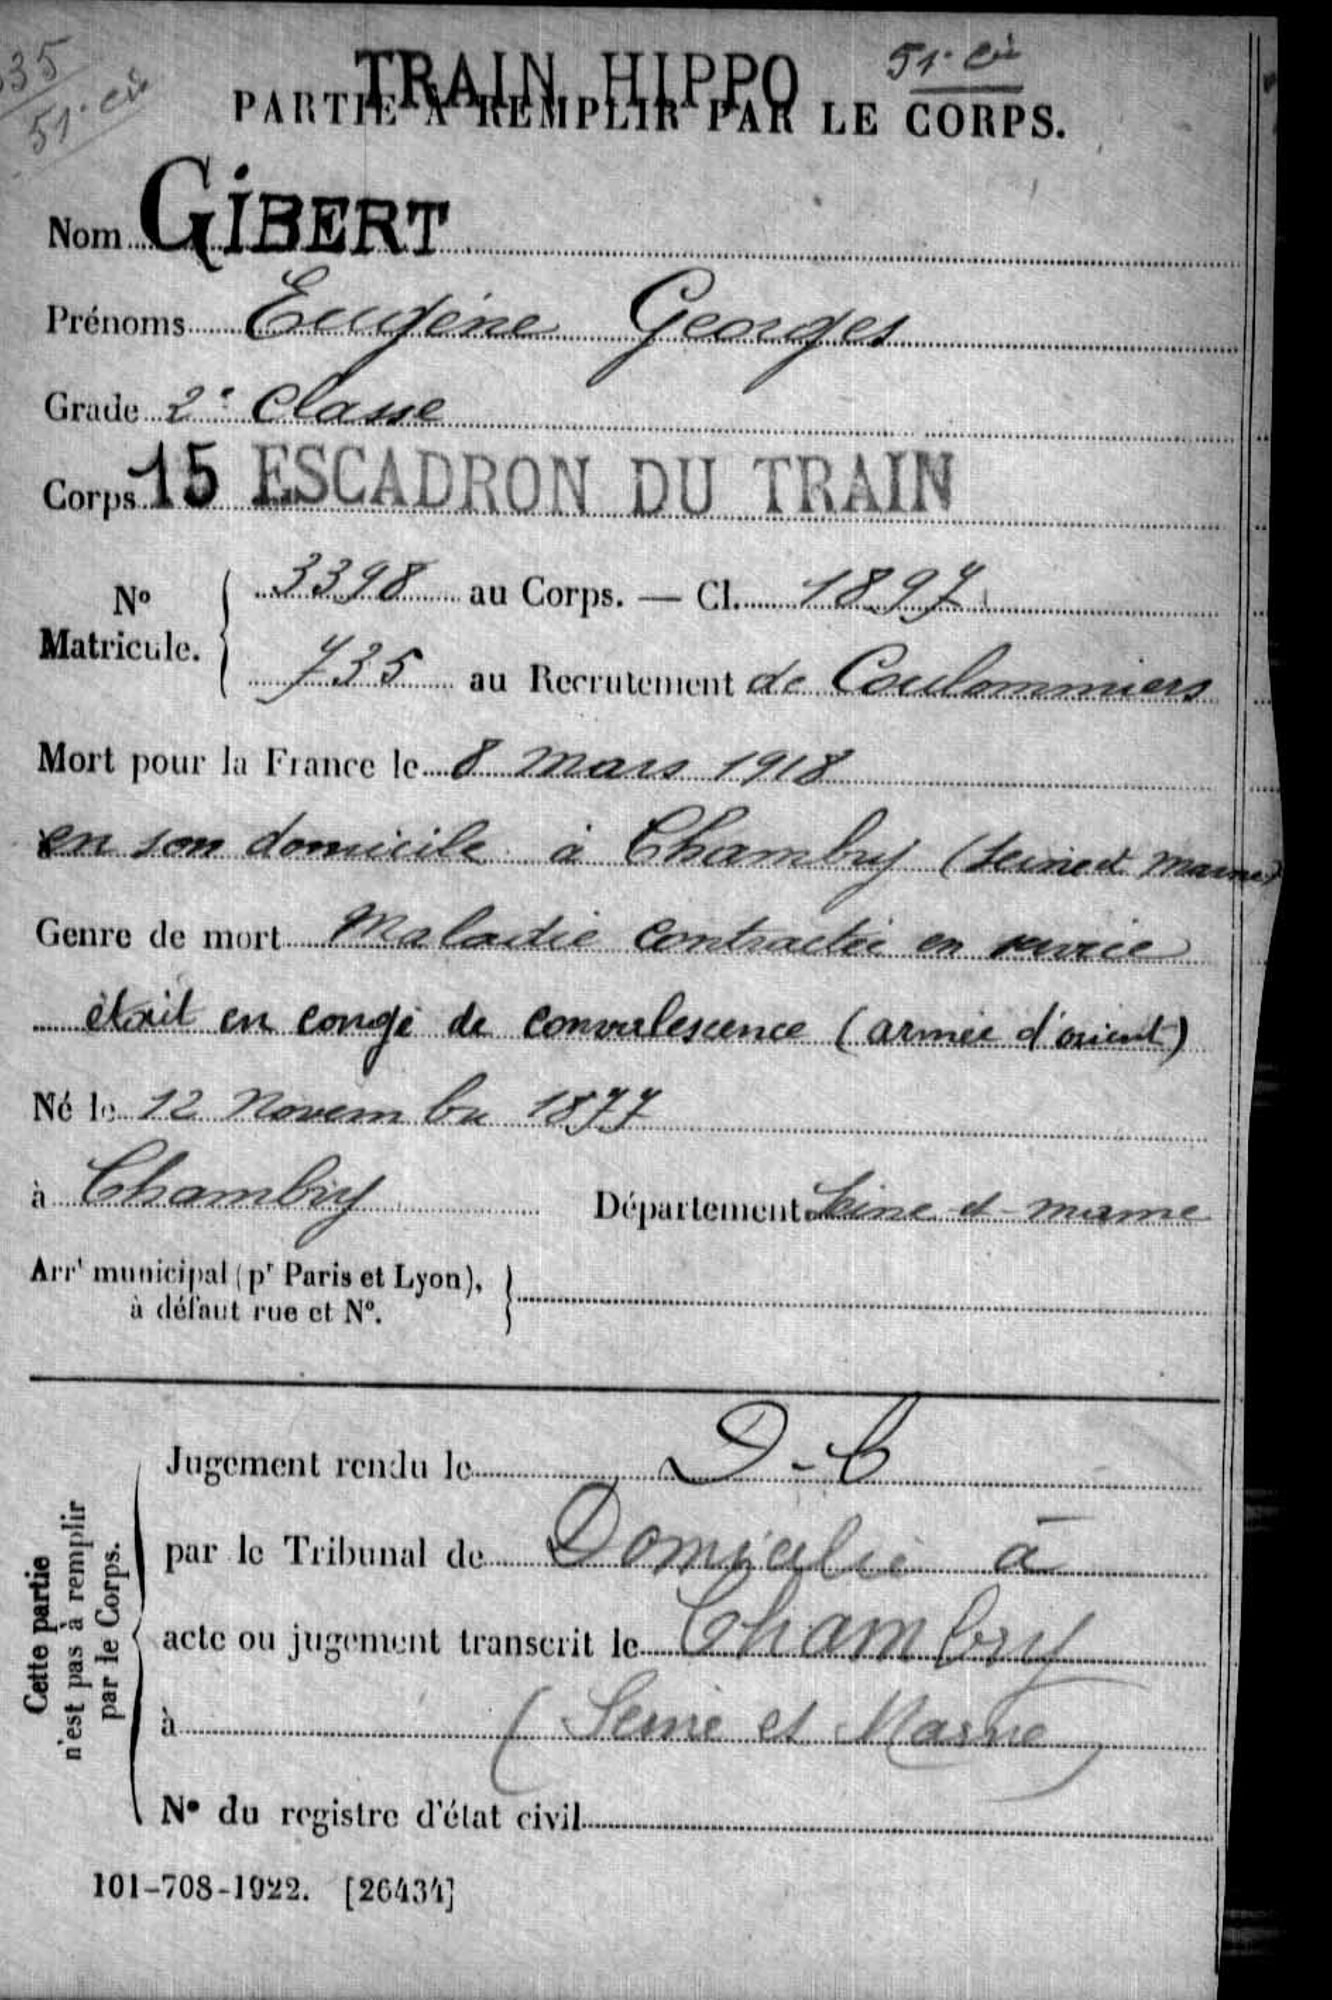 35
51e Cie
TRAIN HIPPO
51e Cie
PARTIE À REMPLIR PAR LE CORPS.
Nom GIBERT
Prénoms Eugène Georges
Grade 2e Classe
Corps 15 ESCADRON DU TRAIN
No Matricule. { 3398 au Corps. — Cl. 1897
735 au Recrutement de Coulommiers
Mort pour la France le 8 mars 1918
en son domicile à Chambry (Seine et Marne)
Genre de mort Maladie contractée en service
était en congé de convalescence (armée d'orient)
Né le 12 Novembre 1877
à Chambry Département Seine et Marne
Arrt municipal (pr Paris et Lyon),
à défaut rue et No. }
Cette partie
n'est pas à remplir
par le Corps.
Jugement rendu le D-C
par le Tribunal de Domicilié à
acte ou jugement transcrit le Chambry
à (Seine et Marne)
No du registre d'état civil
101-708-1922. [26434]